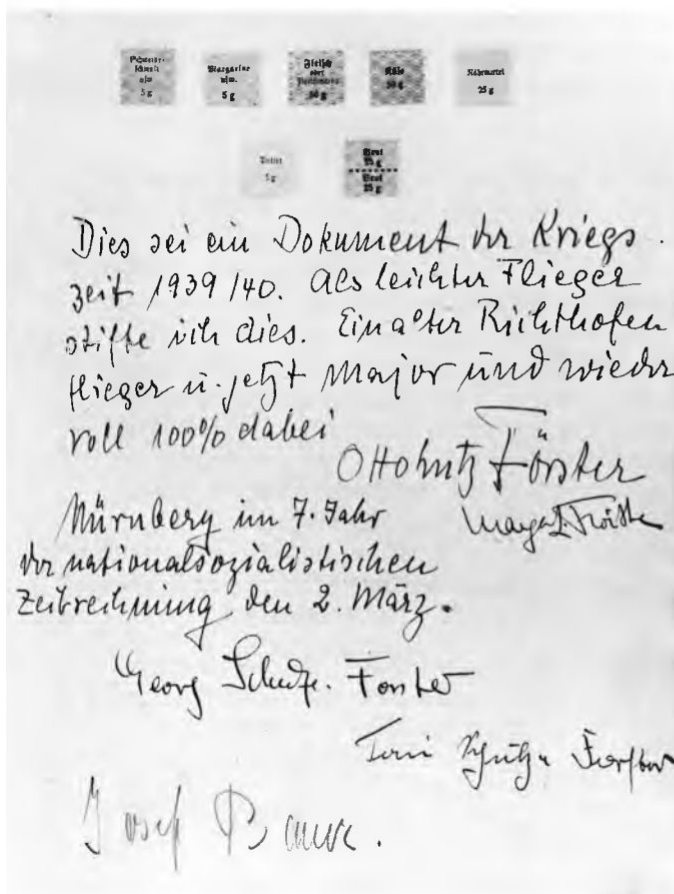 Schweine-
schmalz
usw.
5 g
Margarine
usw.
5 g
Fleisch
oder
Fleischwaren
50 g
Käse
Nährmittel
25 g
Butter
5 g
Brot
25 g
Brot
25 g
Dies sei ein Dokument der Kriegs
zeit 1939/40. Als leichter Flieger
stifte ich dies. Ein alter Richthofen
flieger u. jetzt Major und wieder
voll 100% dabei
Förster
Nürnberg im 7. Jahr
der nationalsozialistischen
Zeitrechnung, den 2. März.
Georg
Josef